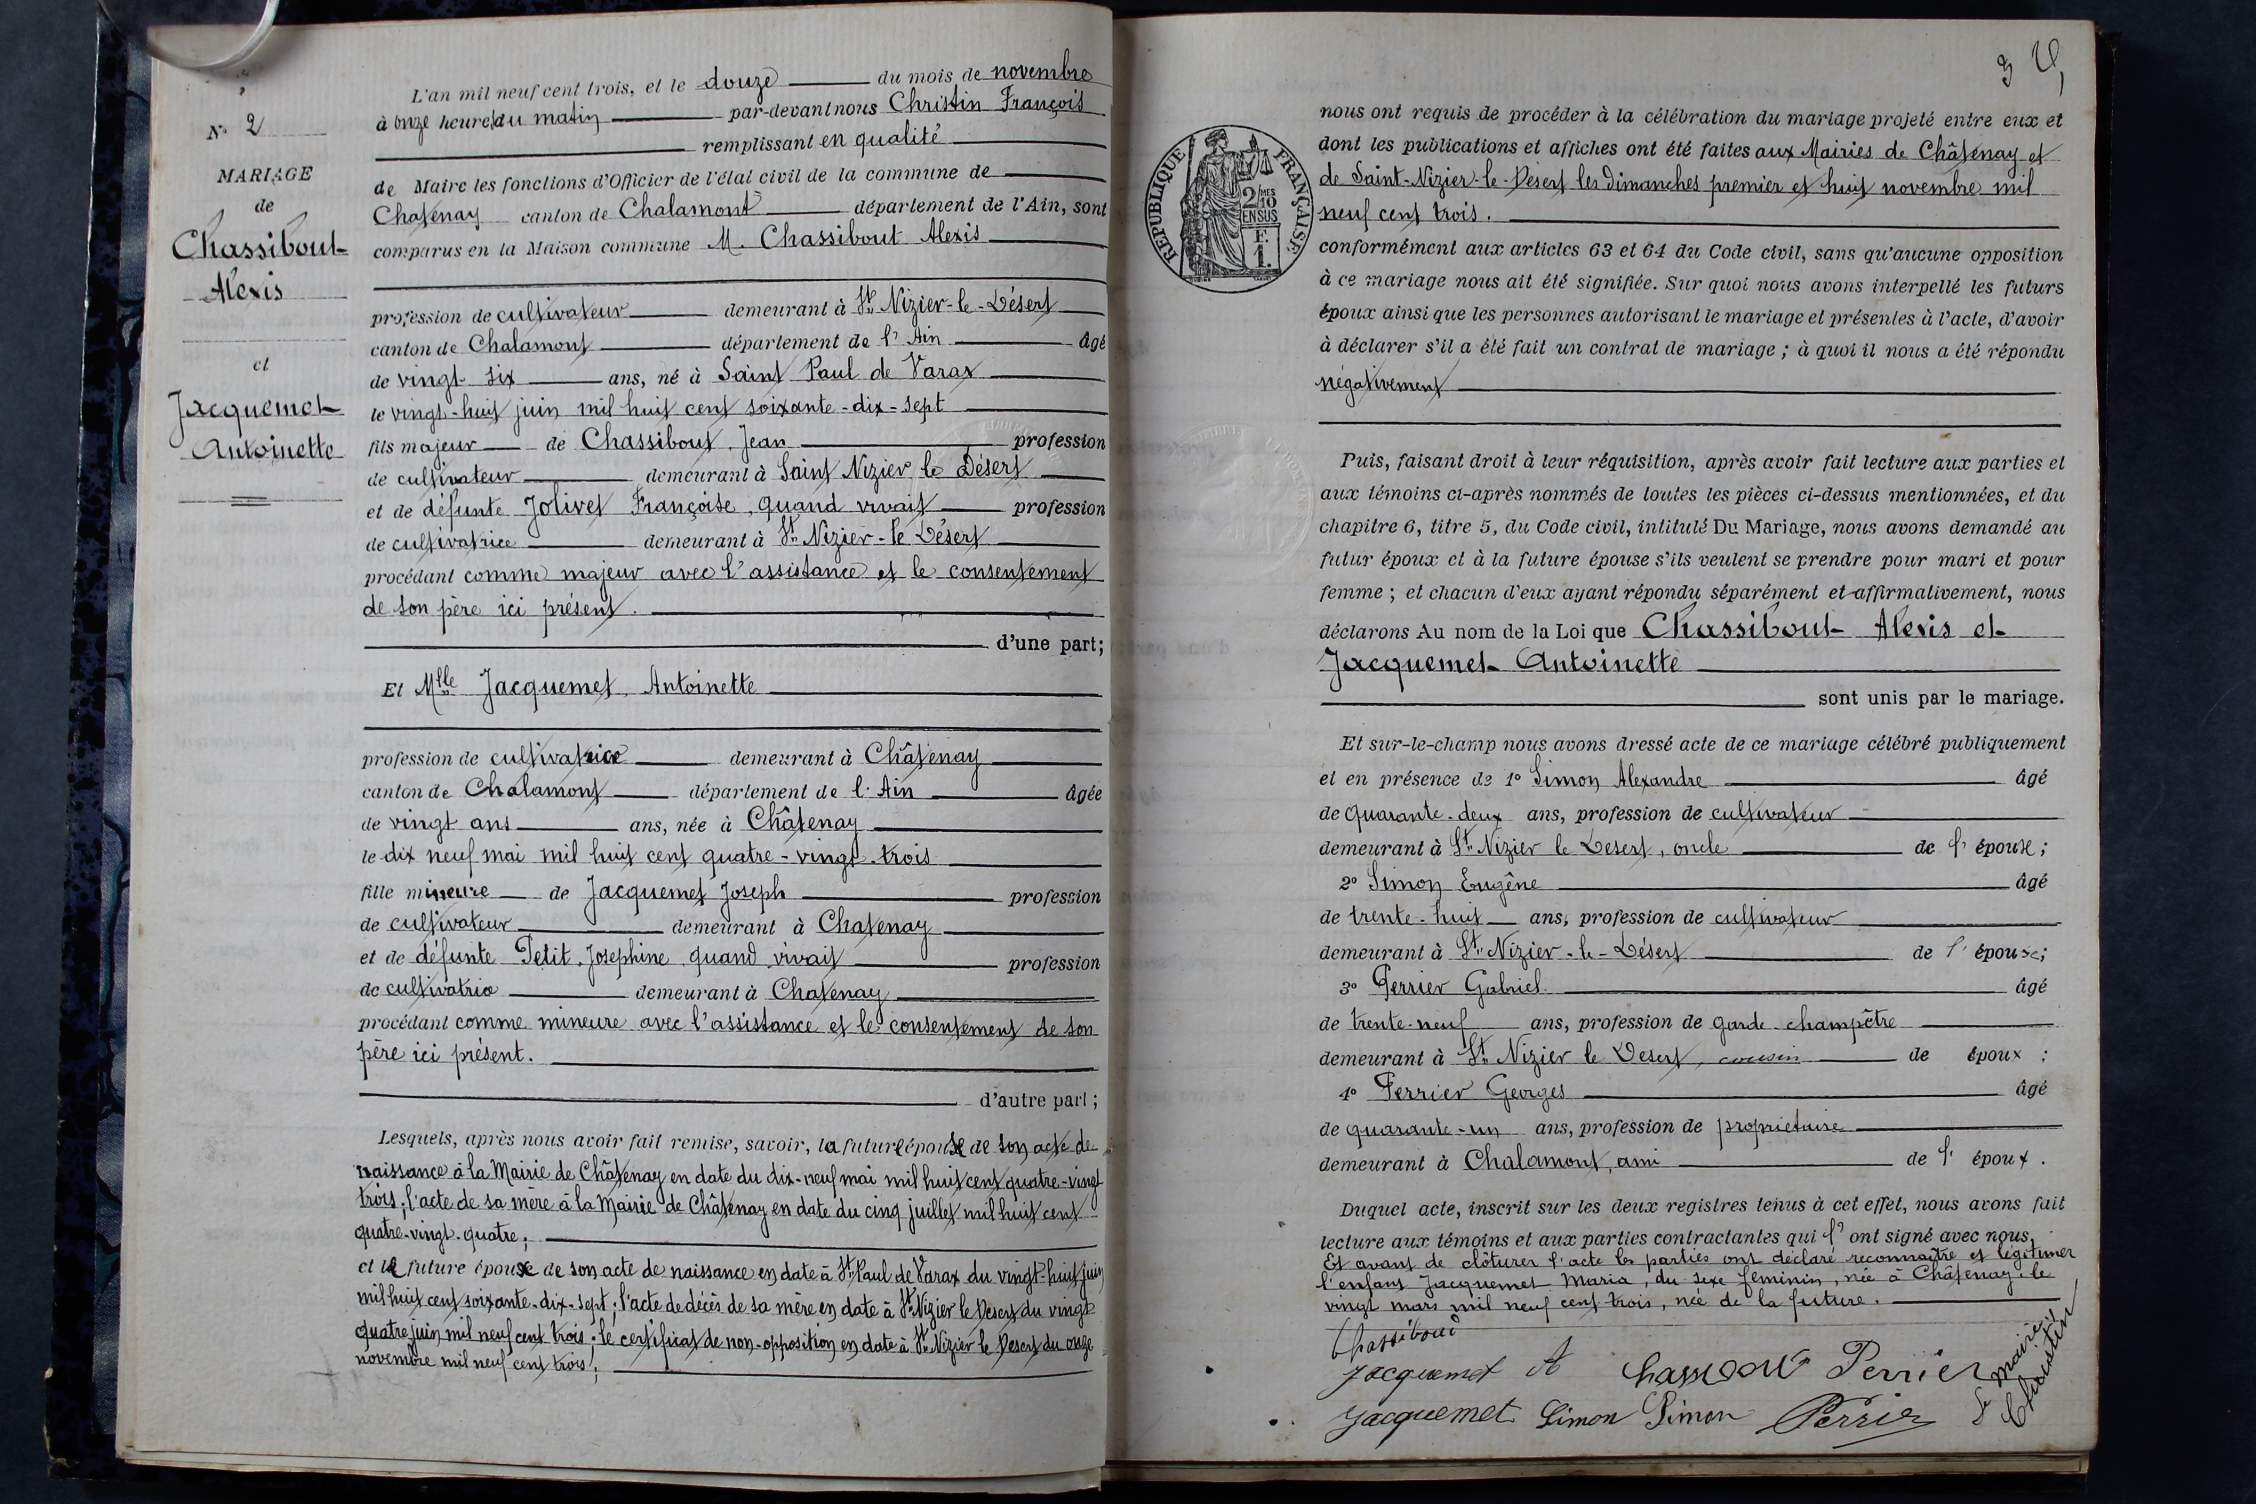 L'an mil neuf cent trois, et le douze du mois de novembre
à onze heures du matin par-devant nous Christin François
remplissant en qualité
de Maire les fonctions d'Officier de l'état civil de la commune de
Chatenay canton de Chalamont département de l'Ain, sont
comparus en la Maison commune M. Chassibout Alexis
profession de cultivateur demeurant à St Nizier-le-Désert
canton de Chalamont département de l'Ain âgé
de vingt six ans, né à Saint Paul de Varax
le vingt-huit juin mil huit cent soixante-dix-sept
fils majeur de Chassibout, Jean profession
de cultivateur demeurant à Saint Nizier le Désert
et de défunte Jolivet Françoise, quand vivait profession
de cultivatrice demeurant à St Nizier-le Désert
procédant comme majeur avec l'assistance et le consentement
de son père ici présent.
d'une part;
Et Mlle Jacquemet, Antoinette
profession de cultivatrice demeurant à Châtenay
canton de Chalamont département de l'Ain âgée
de vingt ans ans, née à Châtenay
le dix neuf mai mil huit cent quatre-vingt-trois
fille mineure de Jacquemet Joseph profession
de cultivateur demeurant à Chatenay
et de défunte Petit Josephine quand vivait profession
de cultivatrice demeurant à Chatenay
procédant comme mineure avec l'assistance et le consentement de son
père ici présent.
d'autre part;
Lesquels, après nous avoir fait remise, savoir, la future épouse de son acte de
naissance à la Mairie de Châtenay en date du dix-neuf mai mil huit cent quatre-vingt
trois; l'acte de sa mère à la Mairie de Châtenay en date du cinq juillet mil huit cent
quatre-vingt-quatre;
et le future épouse de son acte de naissance en date à St Paul de Varax du vingt-huit juin
mil huit cent soixante-dix-sept; l'acte de décès de sa mère en date à St Nizier le Desert du vingt
quatre juin mil neuf cent trois; le certificat de non-opposition en date à St Nizier le Desert du onze
novembre mil neuf cent trois;
N° 2
MARIAGE
de
Chassibout
Alexis
et
Jacquemet
Antoinette
3
RÉPUBLIQUE FRANÇAISE
2/10
EN SUS
F.
1.
nous ont requis de procéder à la célébration du mariage projeté entre eux et
dont les publications et affiches ont été faites aux Mairies de Châtenay et
de Saint-Nizier-le-Desert les dimanches premier et huit novembre mil
neuf cent trois.
conformément aux articles 63 et 64 du Code civil, sans qu'aucune opposition
à ce mariage nous ait été signifiée. Sur quoi nous avons interpellé les futurs
époux ainsi que les personnes autorisant le mariage et présentes à l'acte, d'avoir
à déclarer s'il a été fait un contrat de mariage; à quoi il nous a été répondu
négativement
Puis, faisant droit à leur réquisition, après avoir fait lecture aux parties et
aux témoins ci-après nommés de toutes les pièces ci-dessus mentionnées, et du
chapitre 6, titre 5, du Code civil, intitulé Du Mariage, nous avons demandé au
futur époux et à la future épouse s'ils veulent se prendre pour mari et pour
femme; et chacun d'eux ayant répondu séparément et affirmativement, nous
déclarons Au nom de la Loi que Chassibout Alexis et
Jacquemet Antoinette
sont unis par le mariage.
Et sur-le-champ nous avons dressé acte de ce mariage célébré publiquement
et en présence de 1° Simon Alexandre âgé
de quarante-deux ans, profession de cultivateur
demeurant à St Nizier le Desert, oncle de l'épouse;
2° Simon Eugêne âgé
de trente-huit ans, profession de cultivateur
demeurant à St Nizier-le-Désert de l'épouse;
3° Perrier Gabriel âgé
de trente-neuf ans, profession de garde-champêtre
demeurant à St Nizier le Desert, cousin de époux;
4° Perrier Georges âgé
de quarante-un ans, profession de propriétaire
demeurant à Chalamont, ami de l'époux.
Duquel acte, inscrit sur les deux registres tenus à cet effet, nous avons fait
lecture aux témoins et aux parties contractantes qui l'ont signé avec nous,
Et avant de clôturer l'acte les parties ont déclaré reconnaître et légitimer
l'enfant Jacquemet Maria, du sexe féminin, née à Châtenay le
vingt mars mil neuf cent trois, née de la future.
Chassibout
Jacquemet A Chassibout Perrier
Jacquemet Simon Simon Perrier
Le maire
Christin